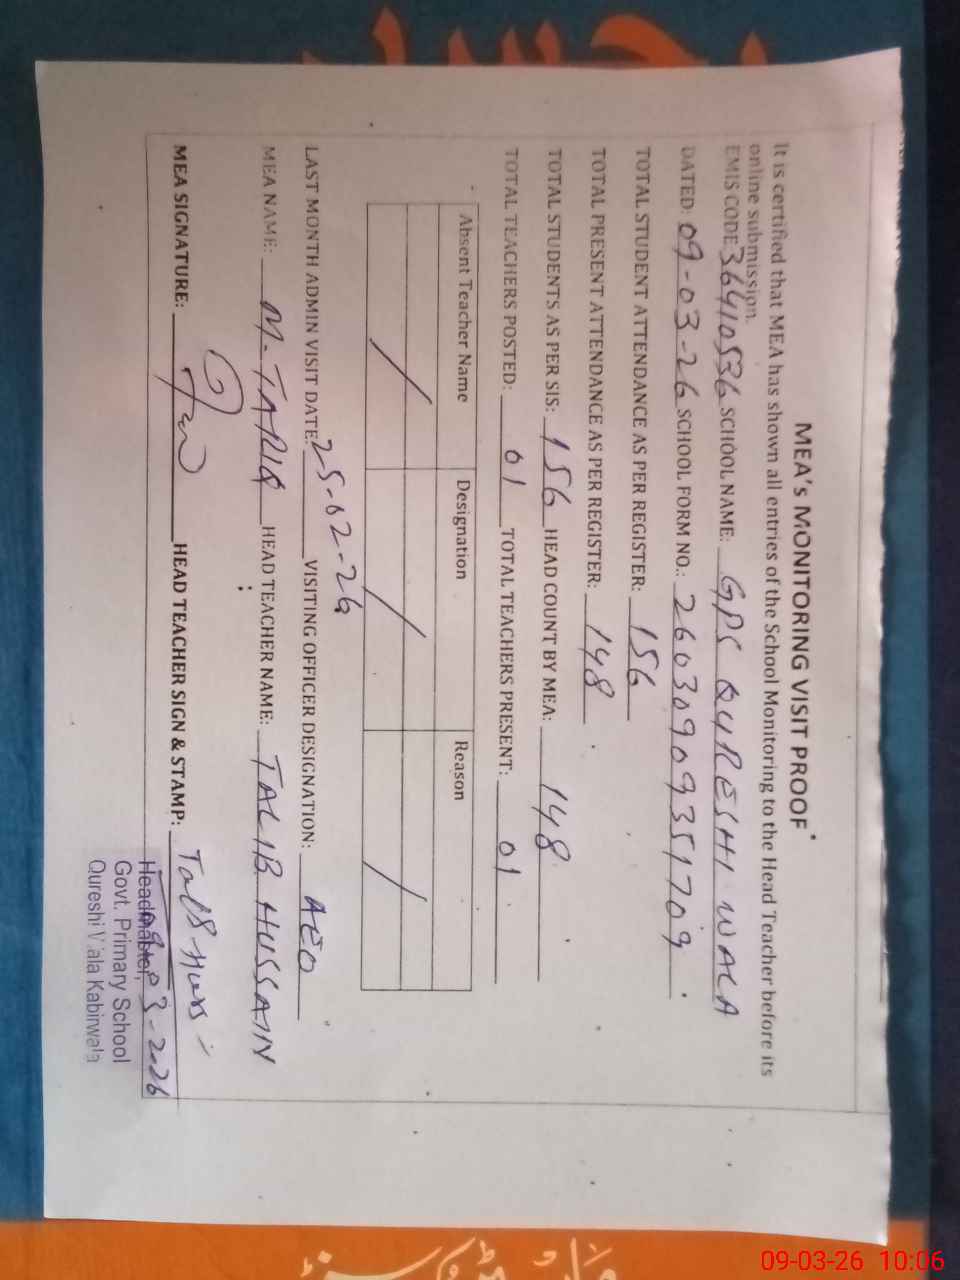 MEA's MONITORING VISIT PROOF
It is certified that MEA has shown all entries of the School Monitoring to the Head Teacher before its
online submission.
EMIS CODE 36410536 SCHOOL NAME: GPS QURESHI WALA
DATED: 09-03-26 SCHOOL FORM NO.: 26030909351709
TOTAL STUDENT ATTENDANCE AS PER REGISTER: 156
TOTAL PRESENT ATTENDANCE AS PER REGISTER: 148
TOTAL STUDENTS AS PER SIS: 156 HEAD COUNT BY MEA: 148
TOTAL TEACHERS POSTED: 01 TOTAL TEACHERS PRESENT: 01
Absent Teacher Name Designation Reason
LAST MONTH ADMIN VISIT DATE: 25-02-26 VISITING OFFICER DESIGNATION: AEO
MEA NAME: M-TARIQ HEAD TEACHER NAME: TALIB HUSSAIN
MEA SIGNATURE: HEAD TEACHER SIGN & STAMP:
09-03-2026
Headmaster,
Govt. Primary School
Qureshi Wala Kabirwala
09-03-26 10:06